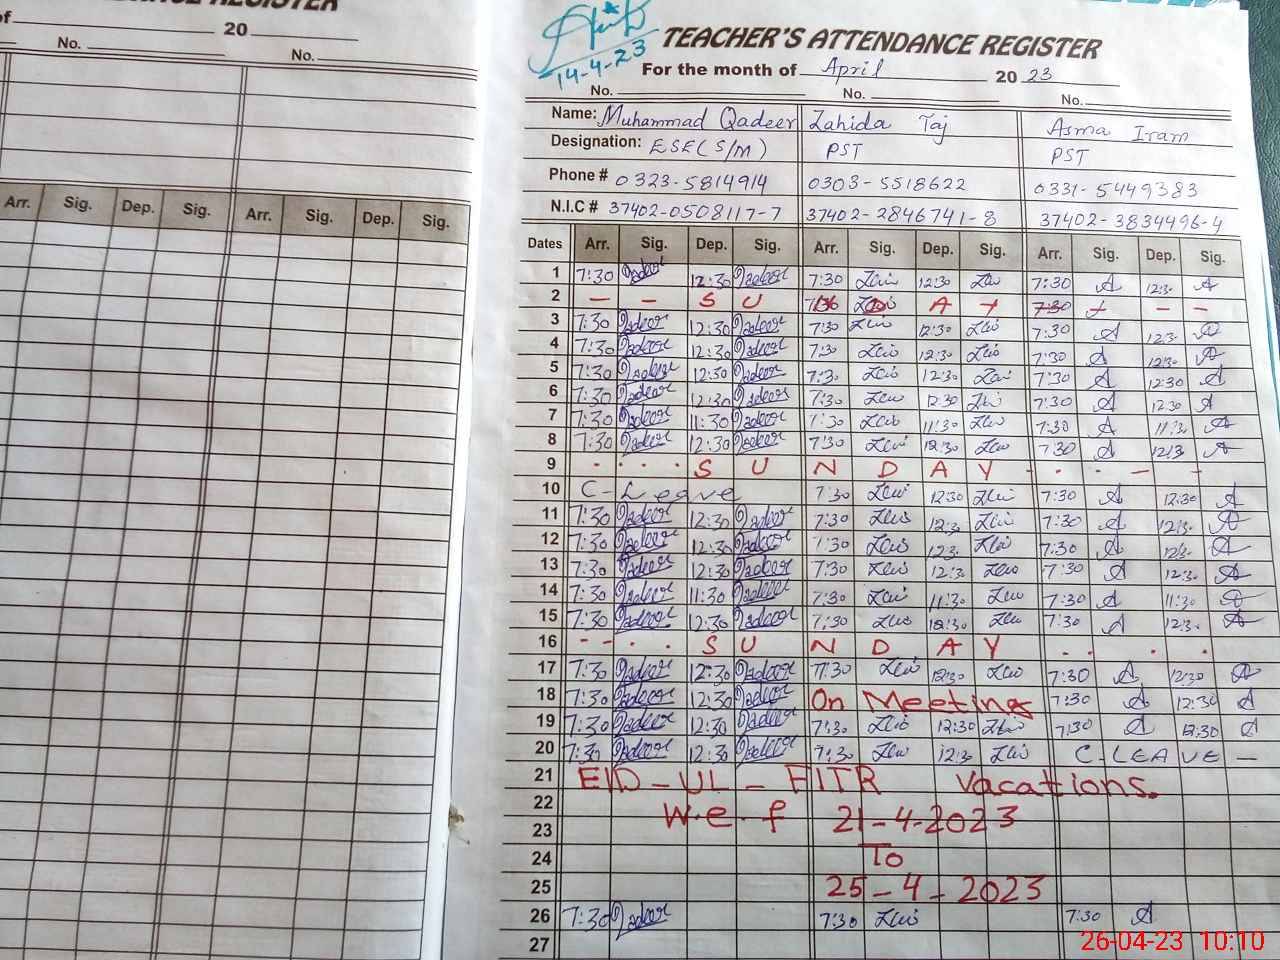 ATTENDANCE REGISTER
of 20
No. No.
Arr. Sig. Dep. Sig. Arr. Sig. Dep. Sig.
14-4-23
TEACHER'S ATTENDANCE REGISTER
For the month of April 20 23
No. No. No.
Name: Muhammad Qadeer Zahida Taj Asma Iram
Designation: ESE(S/M) PST PST
Phone # 0323-5814914 0303-5518622 0331-5449383
N.I.C # 37402-0508117-7 37402-2846741-8 37402-3834496-4
Dates Arr. Sig. Dep. Sig. Arr. Sig. Dep. Sig. Arr. Sig. Dep. Sig.
1 7:30 Qadeer 12:30 Qadeer 7:30 12:30 7:30 A 12:30 A
2 - - S U N D A Y - -
3 7:30 Qadeer 12:30 Qadeer 7:30 12:30 7:30 A 12:30 A
4 7:30 Qadeer 12:30 Qadeer 7:30 12:30 7:30 A 12:30 A
5 7:30 Qadeer 12:30 Qadeer 7:30 12:30 7:30 A 12:30 A
6 7:30 Qadeer 12:30 Qadeer 7:30 12:30 7:30 A 12:30 A
7 7:30 Qadeer 11:30 Qadeer 7:30 11:30 7:30 A 11:30 A
8 7:30 Qadeer 12:30 Qadeer 7:30 12:30 7:30 A 12:30 A
9 . . . . S U N D A Y - . . - -
10 C-Leave 7:30 12:30 7:30 A 12:30 A
11 7:30 Qadeer 12:30 Qadeer 7:30 12:30 7:30 A 12:30 A
12 7:30 Qadeer 12:30 Qadeer 7:30 12:30 7:30 A 12:30 A
13 7:30 Qadeer 12:30 Qadeer 7:30 12:30 7:30 A 12:30 A
14 7:30 Qadeer 11:30 Qadeer 7:30 11:30 7:30 A 11:30 A
15 7:30 Qadeer 12:30 Qadeer 7:30 12:30 7:30 A 12:30 A
16 - - . . S U N D A Y . . . .
17 7:30 Qadeer 12:30 Qadeer 7:30 12:30 7:30 A 12:30 A
18 7:30 Qadeer 12:30 Qadeer On Meeting 7:30 A 12:30 A
19 7:30 Qadeer 12:30 Qadeer 7:30 12:30 7:30 A 12:30 A
20 7:30 Qadeer 12:30 Qadeer 7:30 12:30 C-LEAVE -
21 EID-UL-FITR Vacations.
22 W.e.f 21-4-2023
23
24 To
25 25-4-2023
26 7:30 Qadeer 7:30 7:30 A
27
26-04-23 10:10